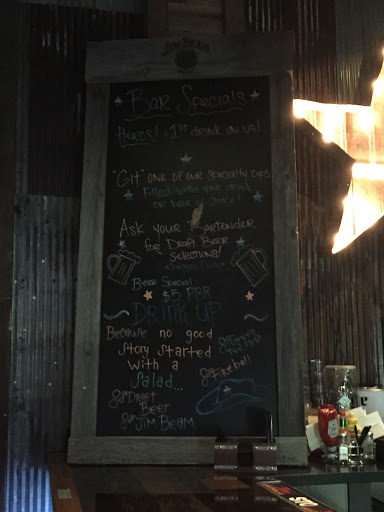 JIM BEAM
Bar Specials
Heros! 1st drink on us!
"Git" one of our specialty cups
Filled with your drink
or beer of choice!
Ask your Bartender
for Draft Beer
selections!
Beer Special
$5 PBR
DRINK UP
Because no good
story started
with a
salad...
$8 Fireball
Draft
Beer
JIM BEAM